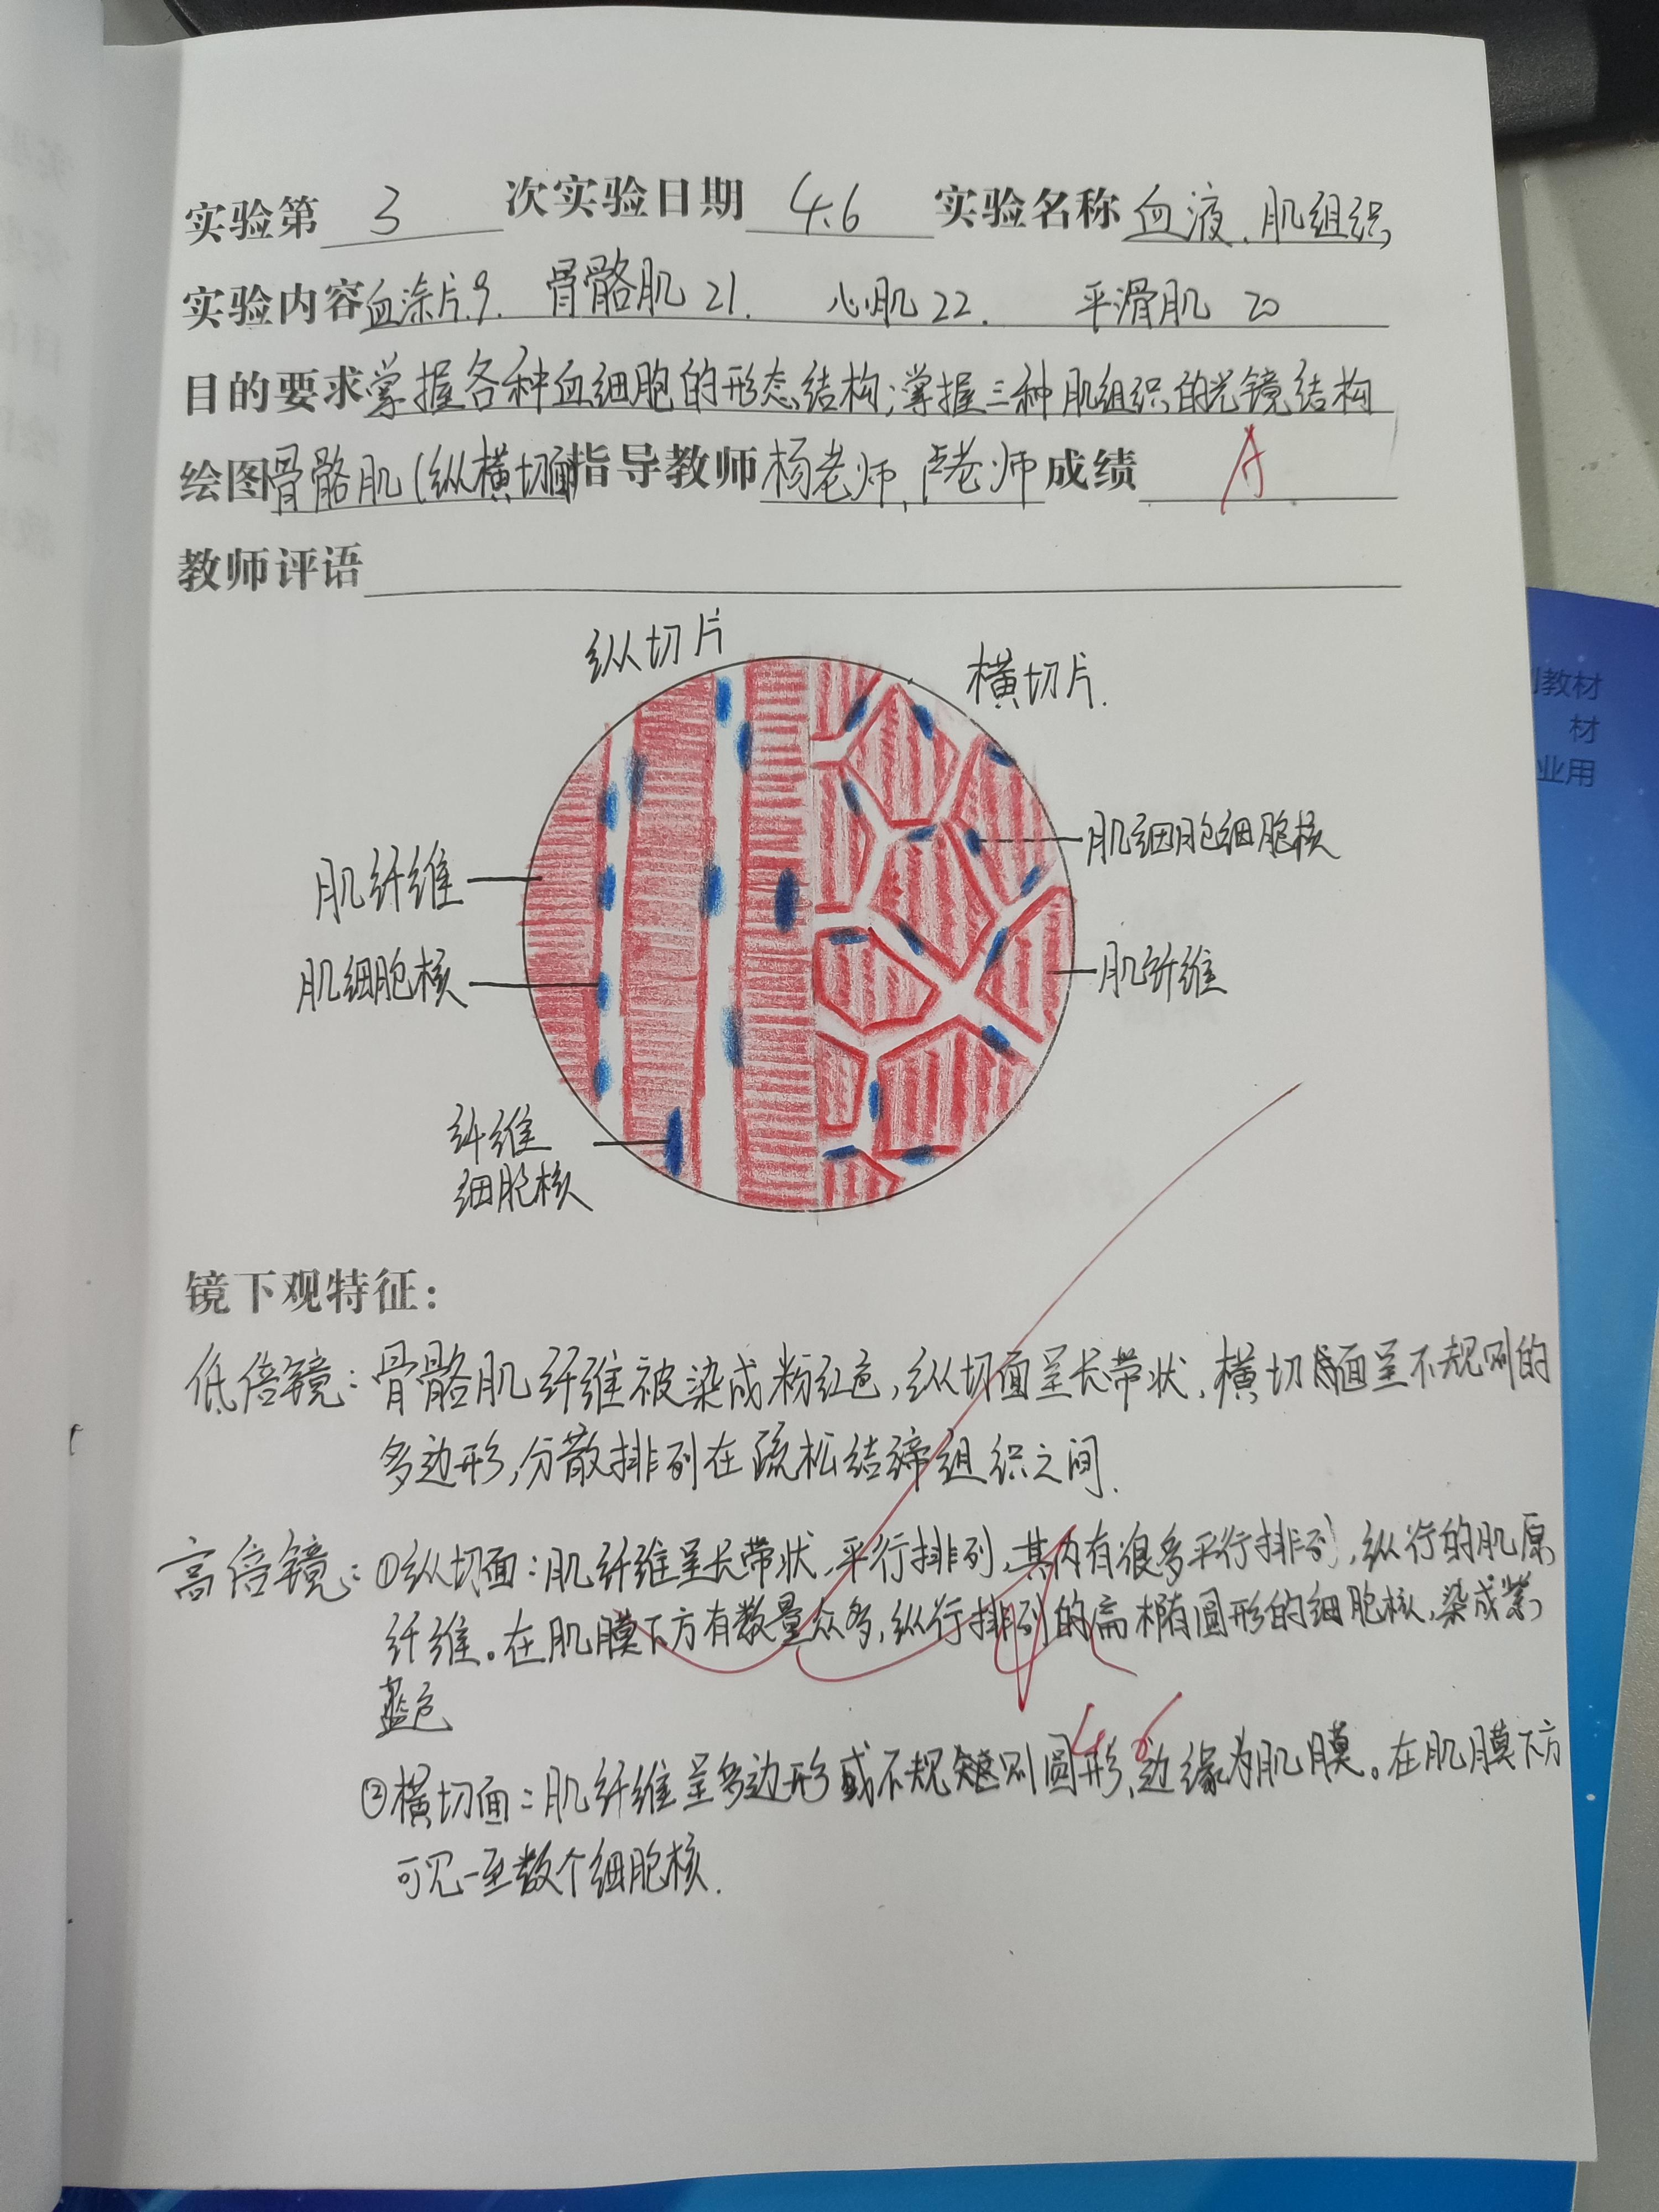 实验第 3 次实验日期 4.6 实验名称 血液、肌组织
实验内容 血涂片9. 骨骼肌21. 心肌22. 平滑肌 20
目的要求 掌握各种血细胞的形态结构;掌握三种肌组织的光镜结构
绘图 骨骼肌(纵横切面) 指导教师 杨老师、卢老师 成绩 A
教师评语
纵切片
横切片.
肌细胞细胞核
肌纤维
肌纤维
肌细胞核
纤维
细胞核
镜下观特征:
低倍镜:骨骼肌纤维被染成粉红色,纵切面呈长带状,横切面呈不规则的
多边形,分散排列在疏松结缔组织之间.
高倍镜:①纵切面:肌纤维呈长带状、平行排列,其内有很多平行排列,纵行的肌原
纤维。在肌膜下方有数量众多,纵行排列的扁椭圆形的细胞核,染成紫
蓝色
4.6
②横切面:肌纤维呈多边形或不规则圆形,边缘为肌膜。在肌膜下方
可见一至数个细胞核.
教材
材
业用